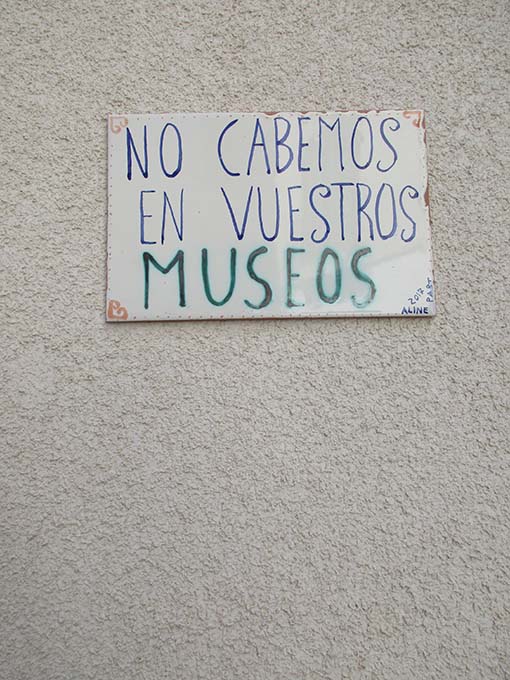 NO CABEMOS
EN VUESTROS
MUSEOS
2012
ALINE